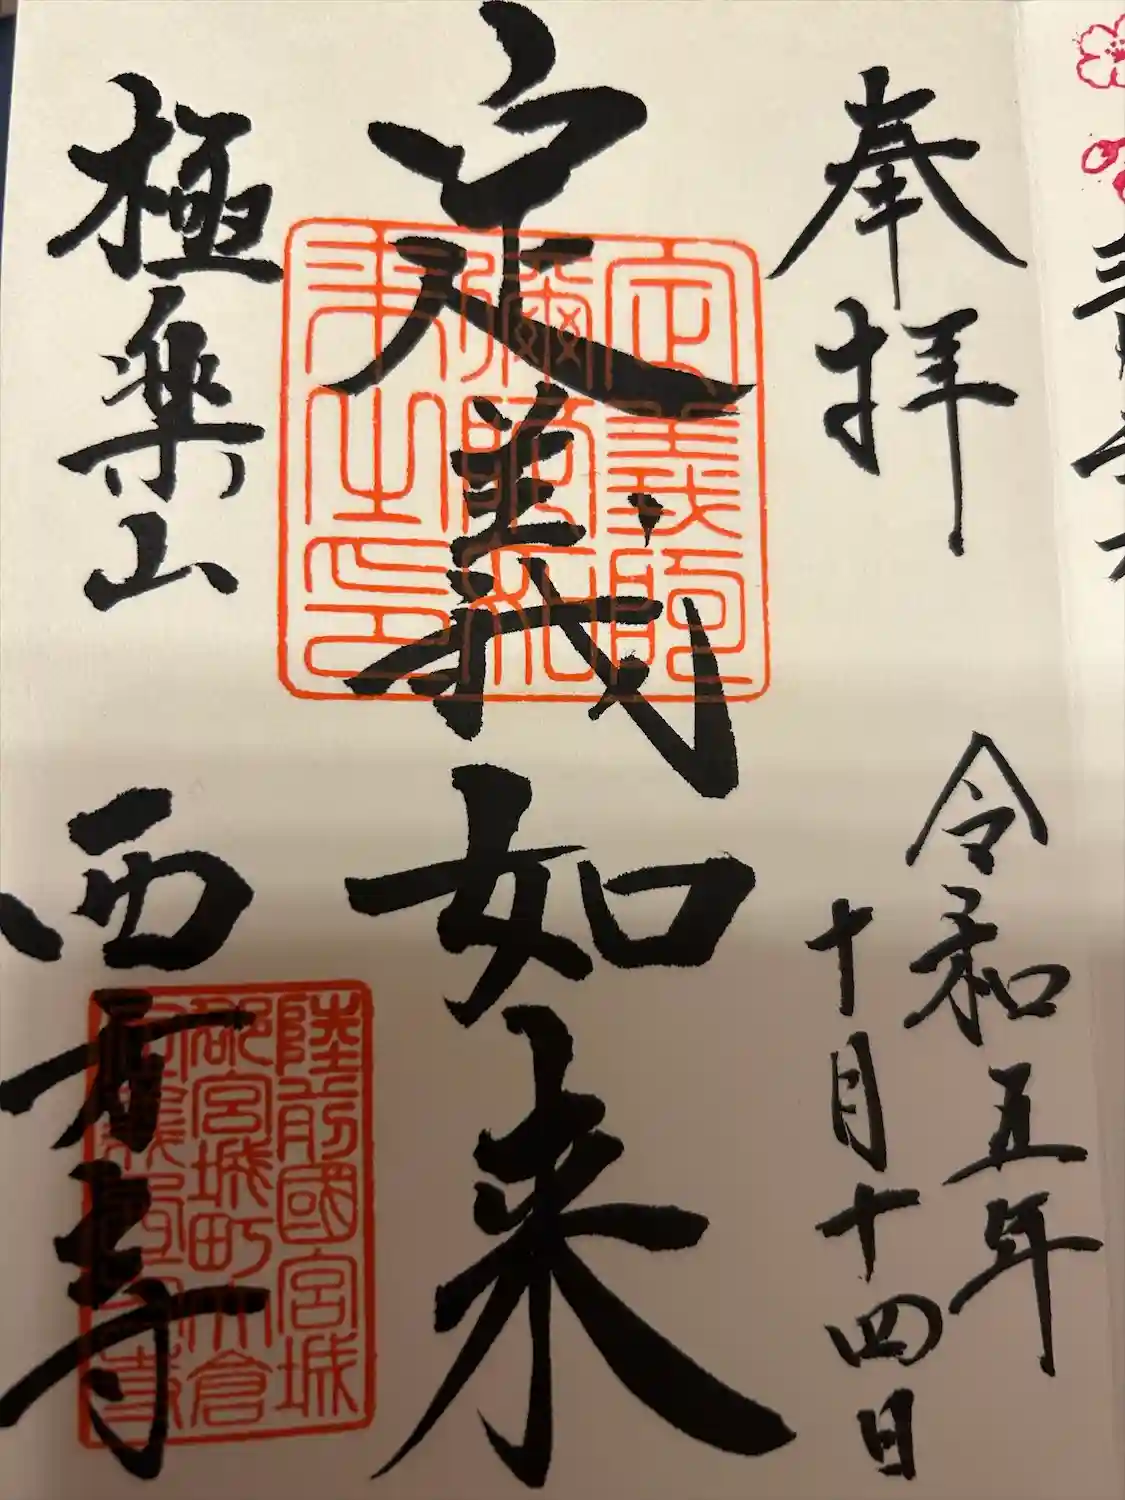 奉拝
令和五年
十月十四日
定義如来
定義阿
彌陀如
来之印
極楽山
西方寺
陸前國宮城
郡宮城町大倉